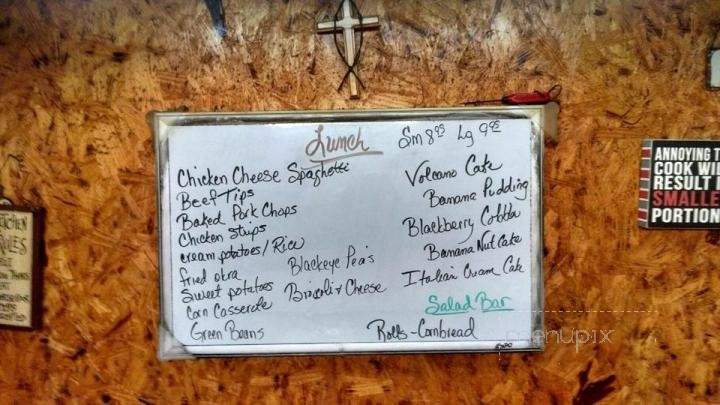 Lunch Sm 8.95 Lg 9.95
Chicken Cheese Spaghetti
Beef Tips
Baked Pork Chops
Chicken Strips
cream potatoes/Rice
fried okra
Sweet potatoes
Corn Casserole
Green Beans
Blackeye Pea's
Broccoli & Cheese
Volcano Cake
Banana Pudding
Blackberry Cobbler
Banana Nut Cake
Italian Cream Cake
Salad Bar
Rolls - Cornbread
ANNOYING T
COOK WI
RESULT I
SMALLE
PORTION
RULES
menupix